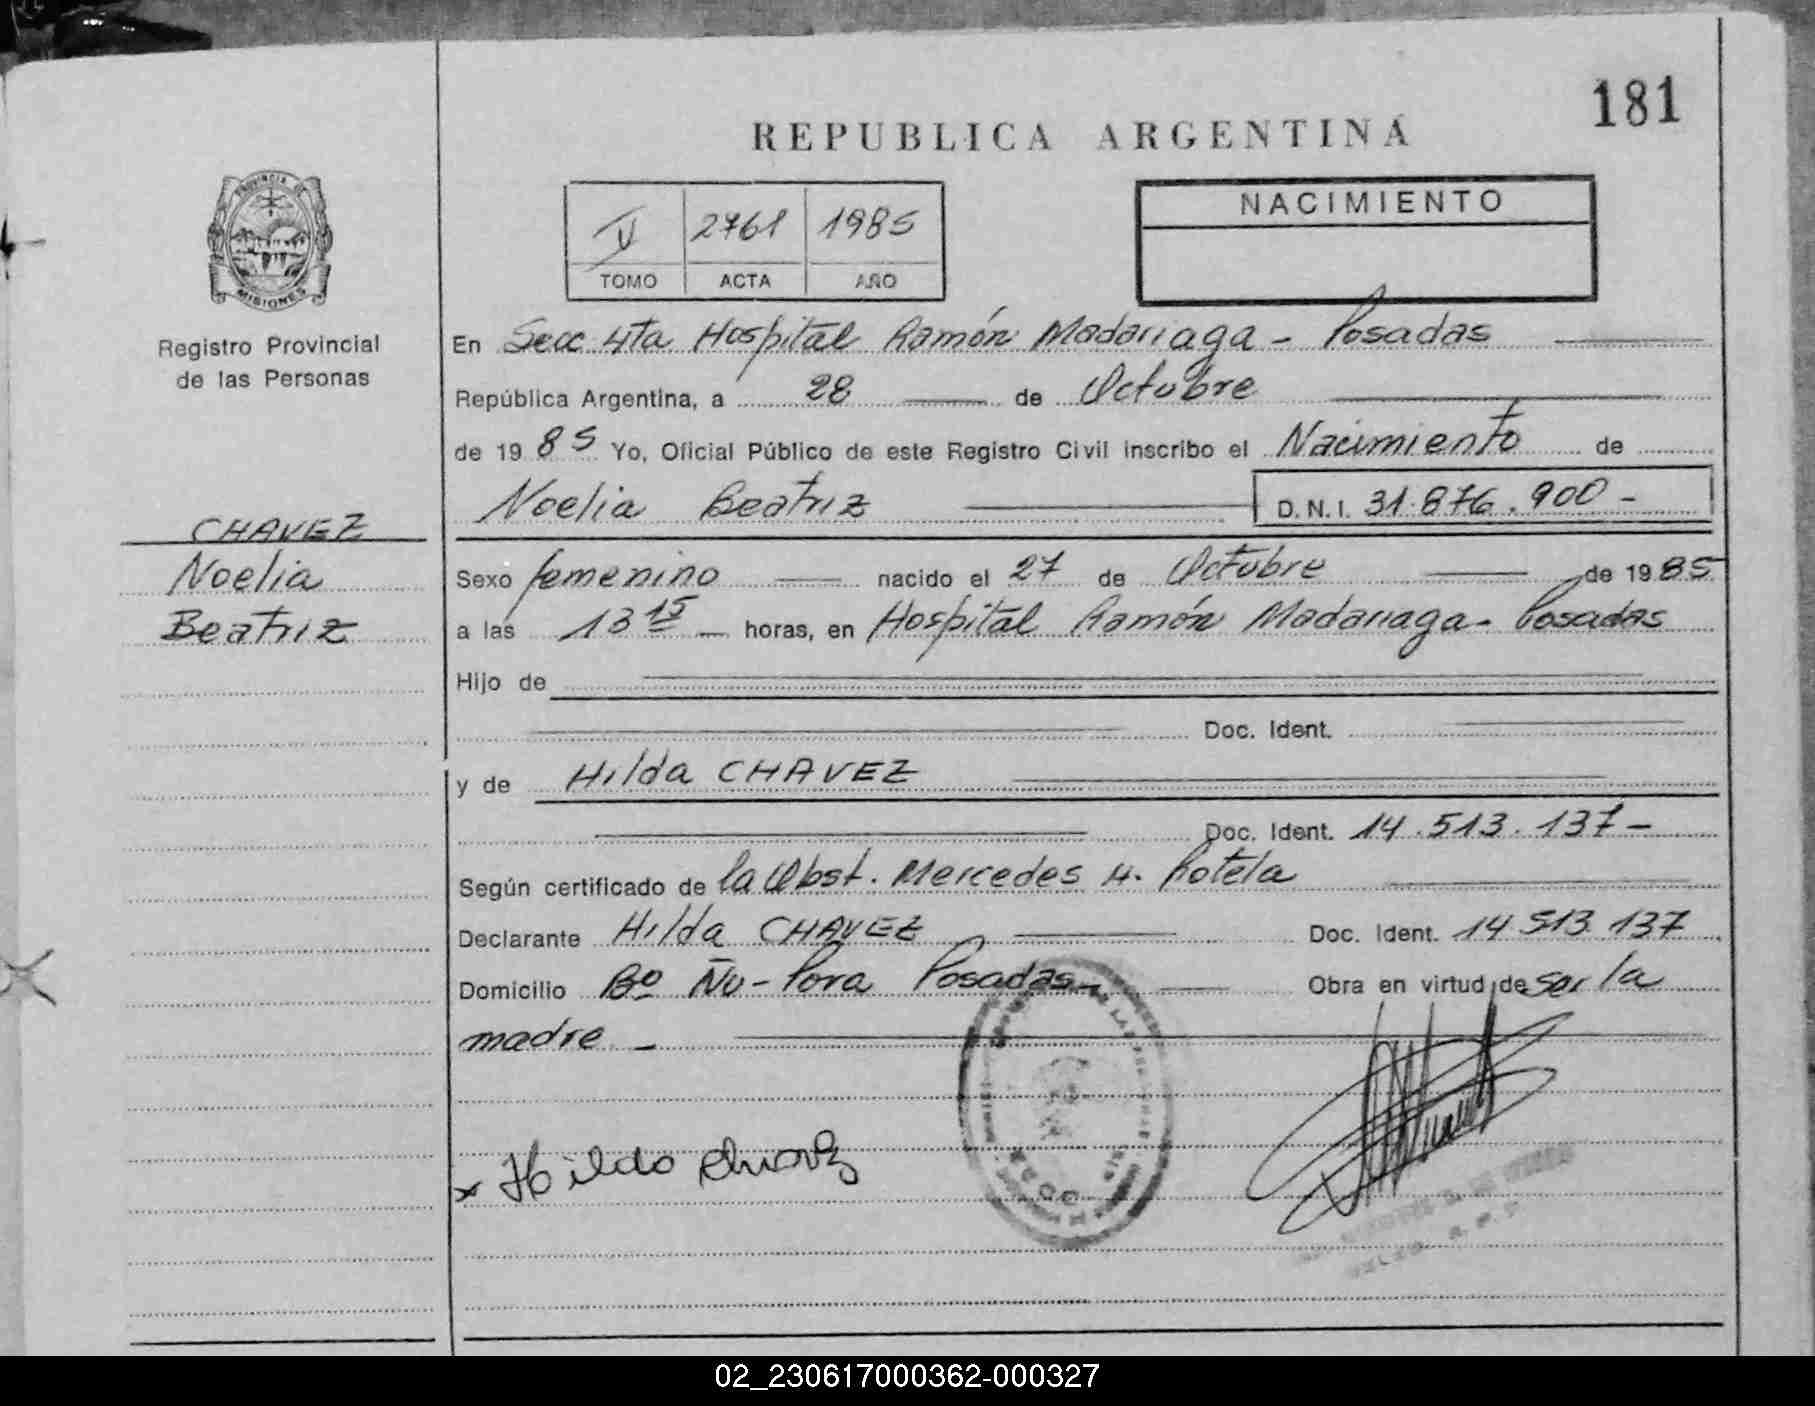 181
REPUBLICA ARGENTINA
PROVINCIA DE
MISIONES
Registro Provincial
de las Personas
V 2761 1985
TOMO ACTA AÑO
NACIMIENTO
En Secc 4ta Hospital Ramón Madariaga - Posadas
República Argentina, a 28 de Octubre
de 1985 Yo, Oficial Público de este Registro Civil inscribo el Nacimiento de
Noelia Beatriz D.N.I. 31.876.900 -
CHAVEZ
Noelia
Beatriz
Sexo femenino nacido el 27 de Octubre de 1985
a las 13 15 horas, en Hospital Ramón Madariaga - Posadas
Hijo de
Doc. Ident.
y de Hilda CHAVEZ
Doc. Ident. 14.513.137 -
Según certificado de la Obst. Mercedes H. Rotela
Declarante Hilda CHAVEZ Doc. Ident. 14 513. 137
Domicilio Bº Ñu - Pora Posadas - Obra en virtud de ser la
madre -
x Hilda Chavez
02_230617000362-000327